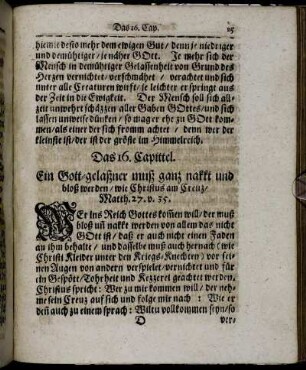 Das 16. Cap. 25
hiemit desto mehr dem ewigen Gut / denn je niedriger
und demühtiger / je näher GOtt. Je mehr sich der
Mensch in demühtiger Gelassenheit von Grund des
Herzen vernichtet / verschmähet / verachtet und sich
unter alle Creaturen wirft / je leichter er springet aus
der Zeit in die Ewigkeit. Der Mensch soll sich allzeit
unwehrt schäzzen aller Gaben GOttes / und sich
lassen unweise dünken / so mag er ehe zu GOtt kommen
/ als einer der sich fromm achtet / denn wer der
kleinste ist / der ist der gröste im Himmelreich.
Das 16. Capittel.
Ein Gott-gelaßner muß ganz nakkt und
bloß werden / wie Christus am Creuz /
Matth. 27. v. 35.
WEr Ins Reich Gottes kom̃en will / der muß
bloß uñ nakkt werden von allem das nicht
GOtt ist / daß er auch nicht einen Faden
an ihm behalte / und dasselbe muß auch hernach (wie
Christi Kleider unter den Kriegs-Knechten) vor seinen
Augen von andern verspielet / vernichtet und für
ein Gespött / Tohrheit und Kezzerei geachtet werden.
Christus spricht: Wer zu mir kommen will / der nehme
sein Creuz auf sich und folge mir nach: Wie er
deñ auch zu einem sprach: Wiltu vollkommen seyn / so
D ver-